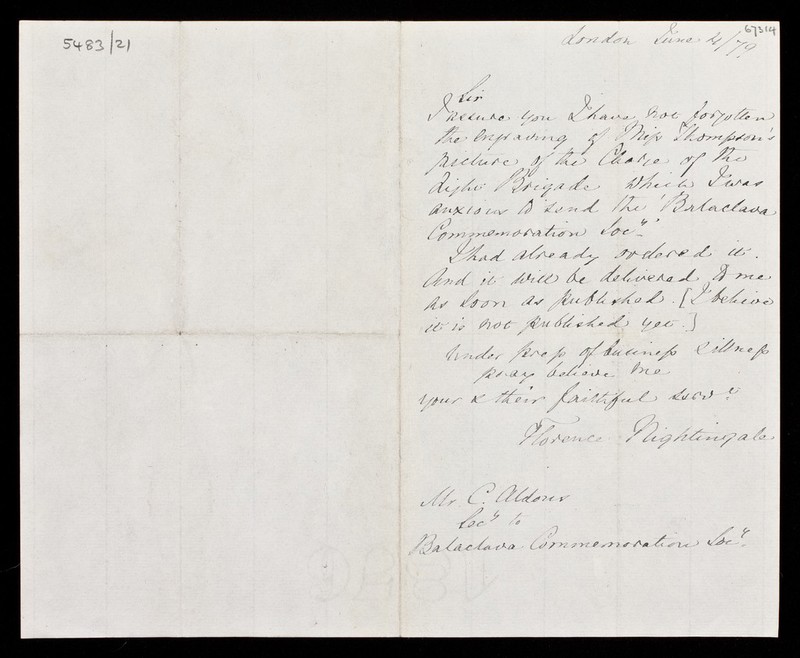 5483/21
67314
London June 4/79
Sir
I assure you I have not forgotten
the engraving of Miss Thompson's
picture of the Charge of the
Light Brigade which I was
anxious to send the 'Balaclava
Commemoration Socy.'
I had already ordered it.
And it will be delivered to me
as soon as published. [I believe
it is not published yet.]
Under press of business & illness
pray believe me
your & their faithful servt
Florence Nightingale
Mr C. Aldous
Secy to
Balaclava Commemoration Socy.